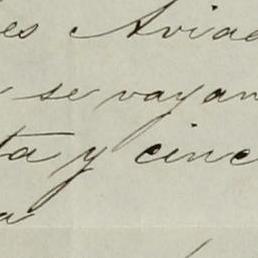 es Aviad
se vayan
ta y cinc
a